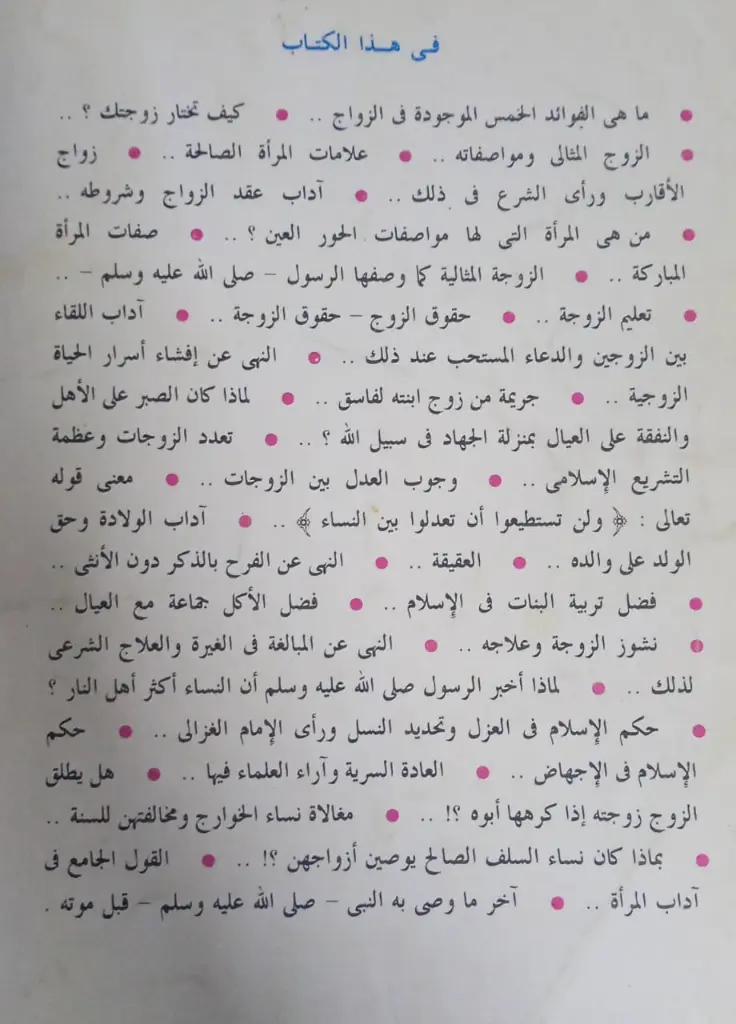 فى هذا الكتاب
● ما هى الفوائد الخمس الموجودة فى الزواج .. ● كيف تختار زوجتك ؟ ..
● الزوج المثالى ومواصفاته .. ● علامات المرأة الصالحة .. ● زواج
الأقارب ورأى الشرع فى ذلك .. ● آداب عقد الزواج وشروطه ..
● من هى المرأة التى لها مواصفات الحور العين ؟ .. ● صفات المرأة
المباركة .. ● الزوجة المثالية كما وصفها الرسول – صلى الله عليه وسلم – ..
● تعليم الزوجة .. ● حقوق الزوج – حقوق الزوجة .. ● آداب اللقاء
بين الزوجين والدعاء المستحب عند ذلك .. ● النهى عن إفشاء أسرار الحياة
الزوجية .. ● جريمة من زوج ابنته لفاسق .. ● لماذا كان الصبر على الأهل
والنفقة على العيال بمنزلة الجهاد فى سبيل الله ؟ .. ● تعدد الزوجات وعظمة
التشريع الإسلامى .. ● وجوب العدل بين الزوجات .. ● معنى قوله
تعالى : ﴿ ولن تستطيعوا أن تعدلوا بين النساء ﴾ .. ● آداب الولادة وحق
الولد على والده .. ● العقيقة .. ● النهى عن الفرح بالذكر دون الأنثى ..
● فضل تربية البنات فى الإسلام .. ● فضل الأكل جماعة مع العيال ..
● نشوز الزوجة وعلاجه .. ● النهى عن المبالغة فى الغيرة والعلاج الشرعى
لذلك .. ● لماذا أخبر الرسول صلى الله عليه وسلم أن النساء أكثر أهل النار ؟
● حكم الإسلام فى العزل وتحديد النسل ورأى الإمام الغزالى .. ● حكم
الإسلام فى الإجهاض .. ● العادة السرية وآراء العلماء فيها .. ● هل يطلق
الزوج زوجته إذا كرهها أبوه ؟! .. ● مغالاة نساء الخوارج ومخالفتهن للسنة ..
● بماذا كان نساء السلف الصالح يوصين أزواجهن ؟! .. ● القول الجامع فى
آداب المرأة .. ● آخر ما وصى به النبى – صلى الله عليه وسلم – قبل موته .